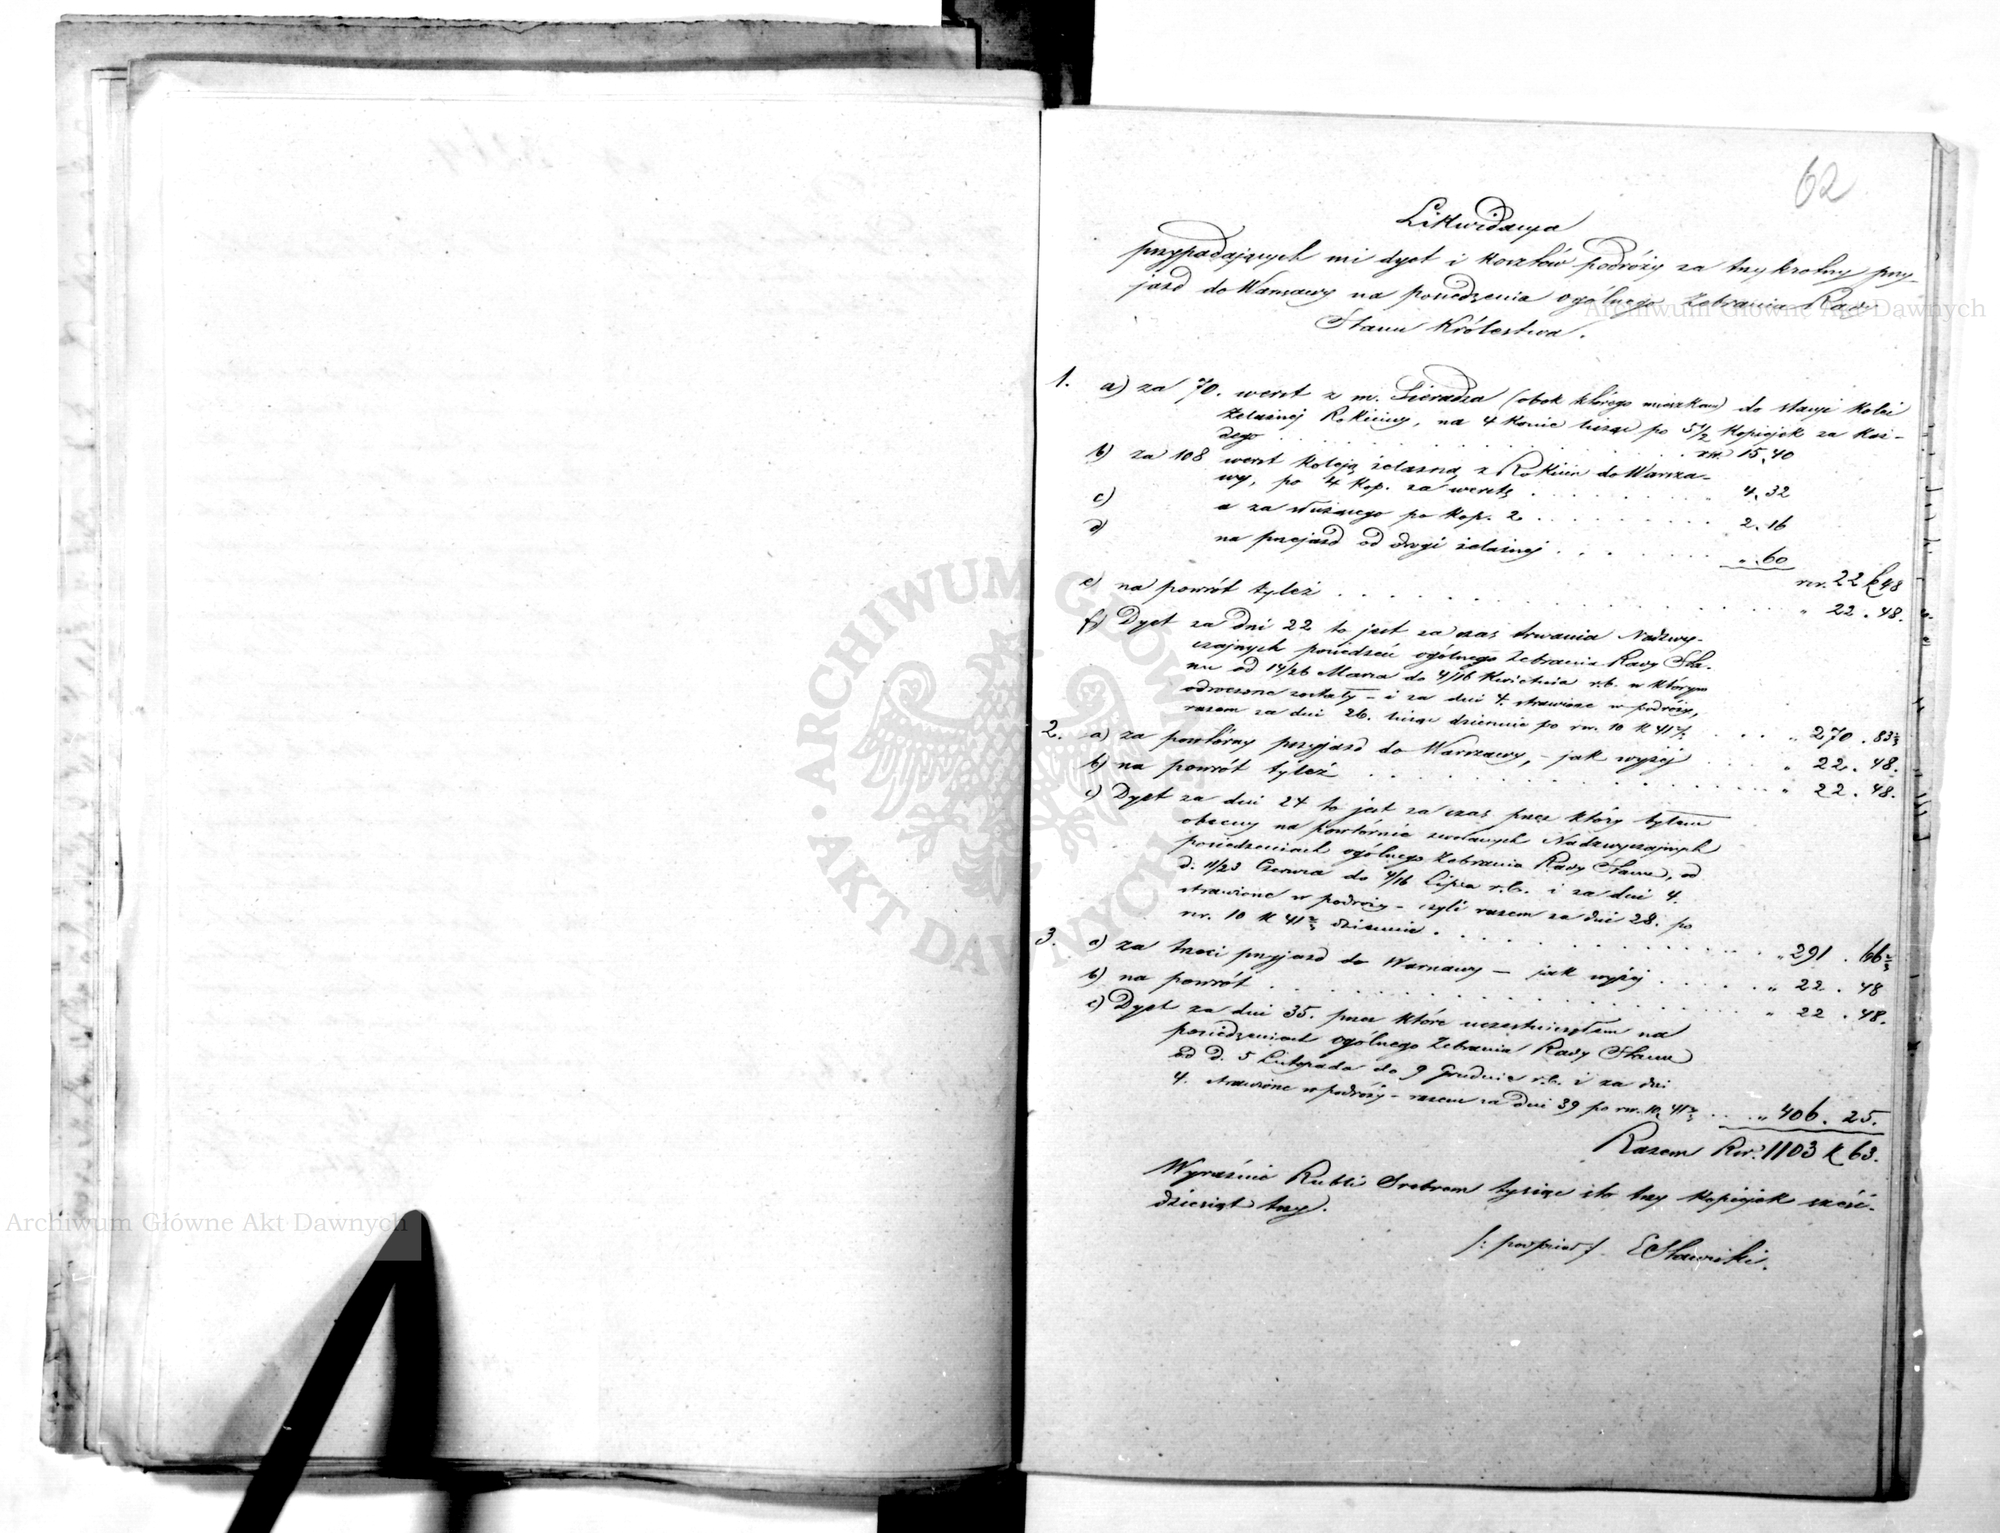 62
Likwidacya
przypadających mi dyet i kosztów podróży za trzykrotny przy-
jazd do Warszawy na posiedzenia ogólnego Zebrania Rady
Stanu Królestwa.
1. a) za 70. werst z m. Sieradza (obok którego mieszkam) do stacyi kolei
żelaznej Rokiciny, na 4 konie licząc po 5 1/2 kopiejek za każ-
dego . . . rsr. 15,40
b) za 108 werst koleją żelazną z Rokicin do Warsza-
wy, po 4 kop. za werstę . . . " 4.32
c) a za służącego po kop. 2 . . . 2.16
d) na przejazd od drogi żelaznej . . . " . 60
rsr. 22 k 48
e) na powrót tyleż . . . " 22 . 48.
f) Dyet za dni 22 to jest za czas trwania Nadzwy-
czajnych posiedzeń ogólnego Zebrania Rady Sta-
nu od 14/26 Marca do 4/16 Kwietnia r.b. w którym
odroczone zostały – i za dni 4. strawione w podróży,
razem za dni 26. licząc dziennie po rsr. 10 k 41 2/3 . . . " 270 . 83 1/3
2. a) za powtórny przyjazd do Warszawy, – jak wyżej . . . " 22 . 48.
b) na powrót tyleż . . . " 22 . 48.
c) Dyet za dni 24 to jest za czas przez który byłem
obecny na powtórnie zwołanych Nadzwyczajnych
posiedzeniach ogólnego Zebrania Rady Stanu, od
d. 11/23 Czerwca do 4/16 Lipca r.b. i za dni 4.
strawione w podróży – czyli razem za dni 28. po
rsr. 10 k 41 2/3 dziennie . . . " 291 . 66 2/3
3. a) za trzeci przyjazd do Warszawy – jak wyżej . . . " 22 . 48
b) na powrót . . . " 22 . 48.
c) Dyet za dni 35. przez które uczestniczyłem na
posiedzeniach ogólnego Zebrania Rady Stanu
od d. 5 Listopada do 9 Grudnia r.b. i za dni
4. strawione w podróży – razem za dni 39 po rsr. 10, 41 2/3 . . . " 406 . 25.
Razem Rsr. 1103 k 63.
Wyraźnie Rubli Srebrem tysiąc sto trzy kopiejek sześć-
dziesiąt trzy.
/: podpisał :/ E Stawiski.
Archiwum Główne Akt Dawnych
Archiwum Główne Akt Dawnych
ARCHIWUM GŁÓWNE AKT DAWNYCH